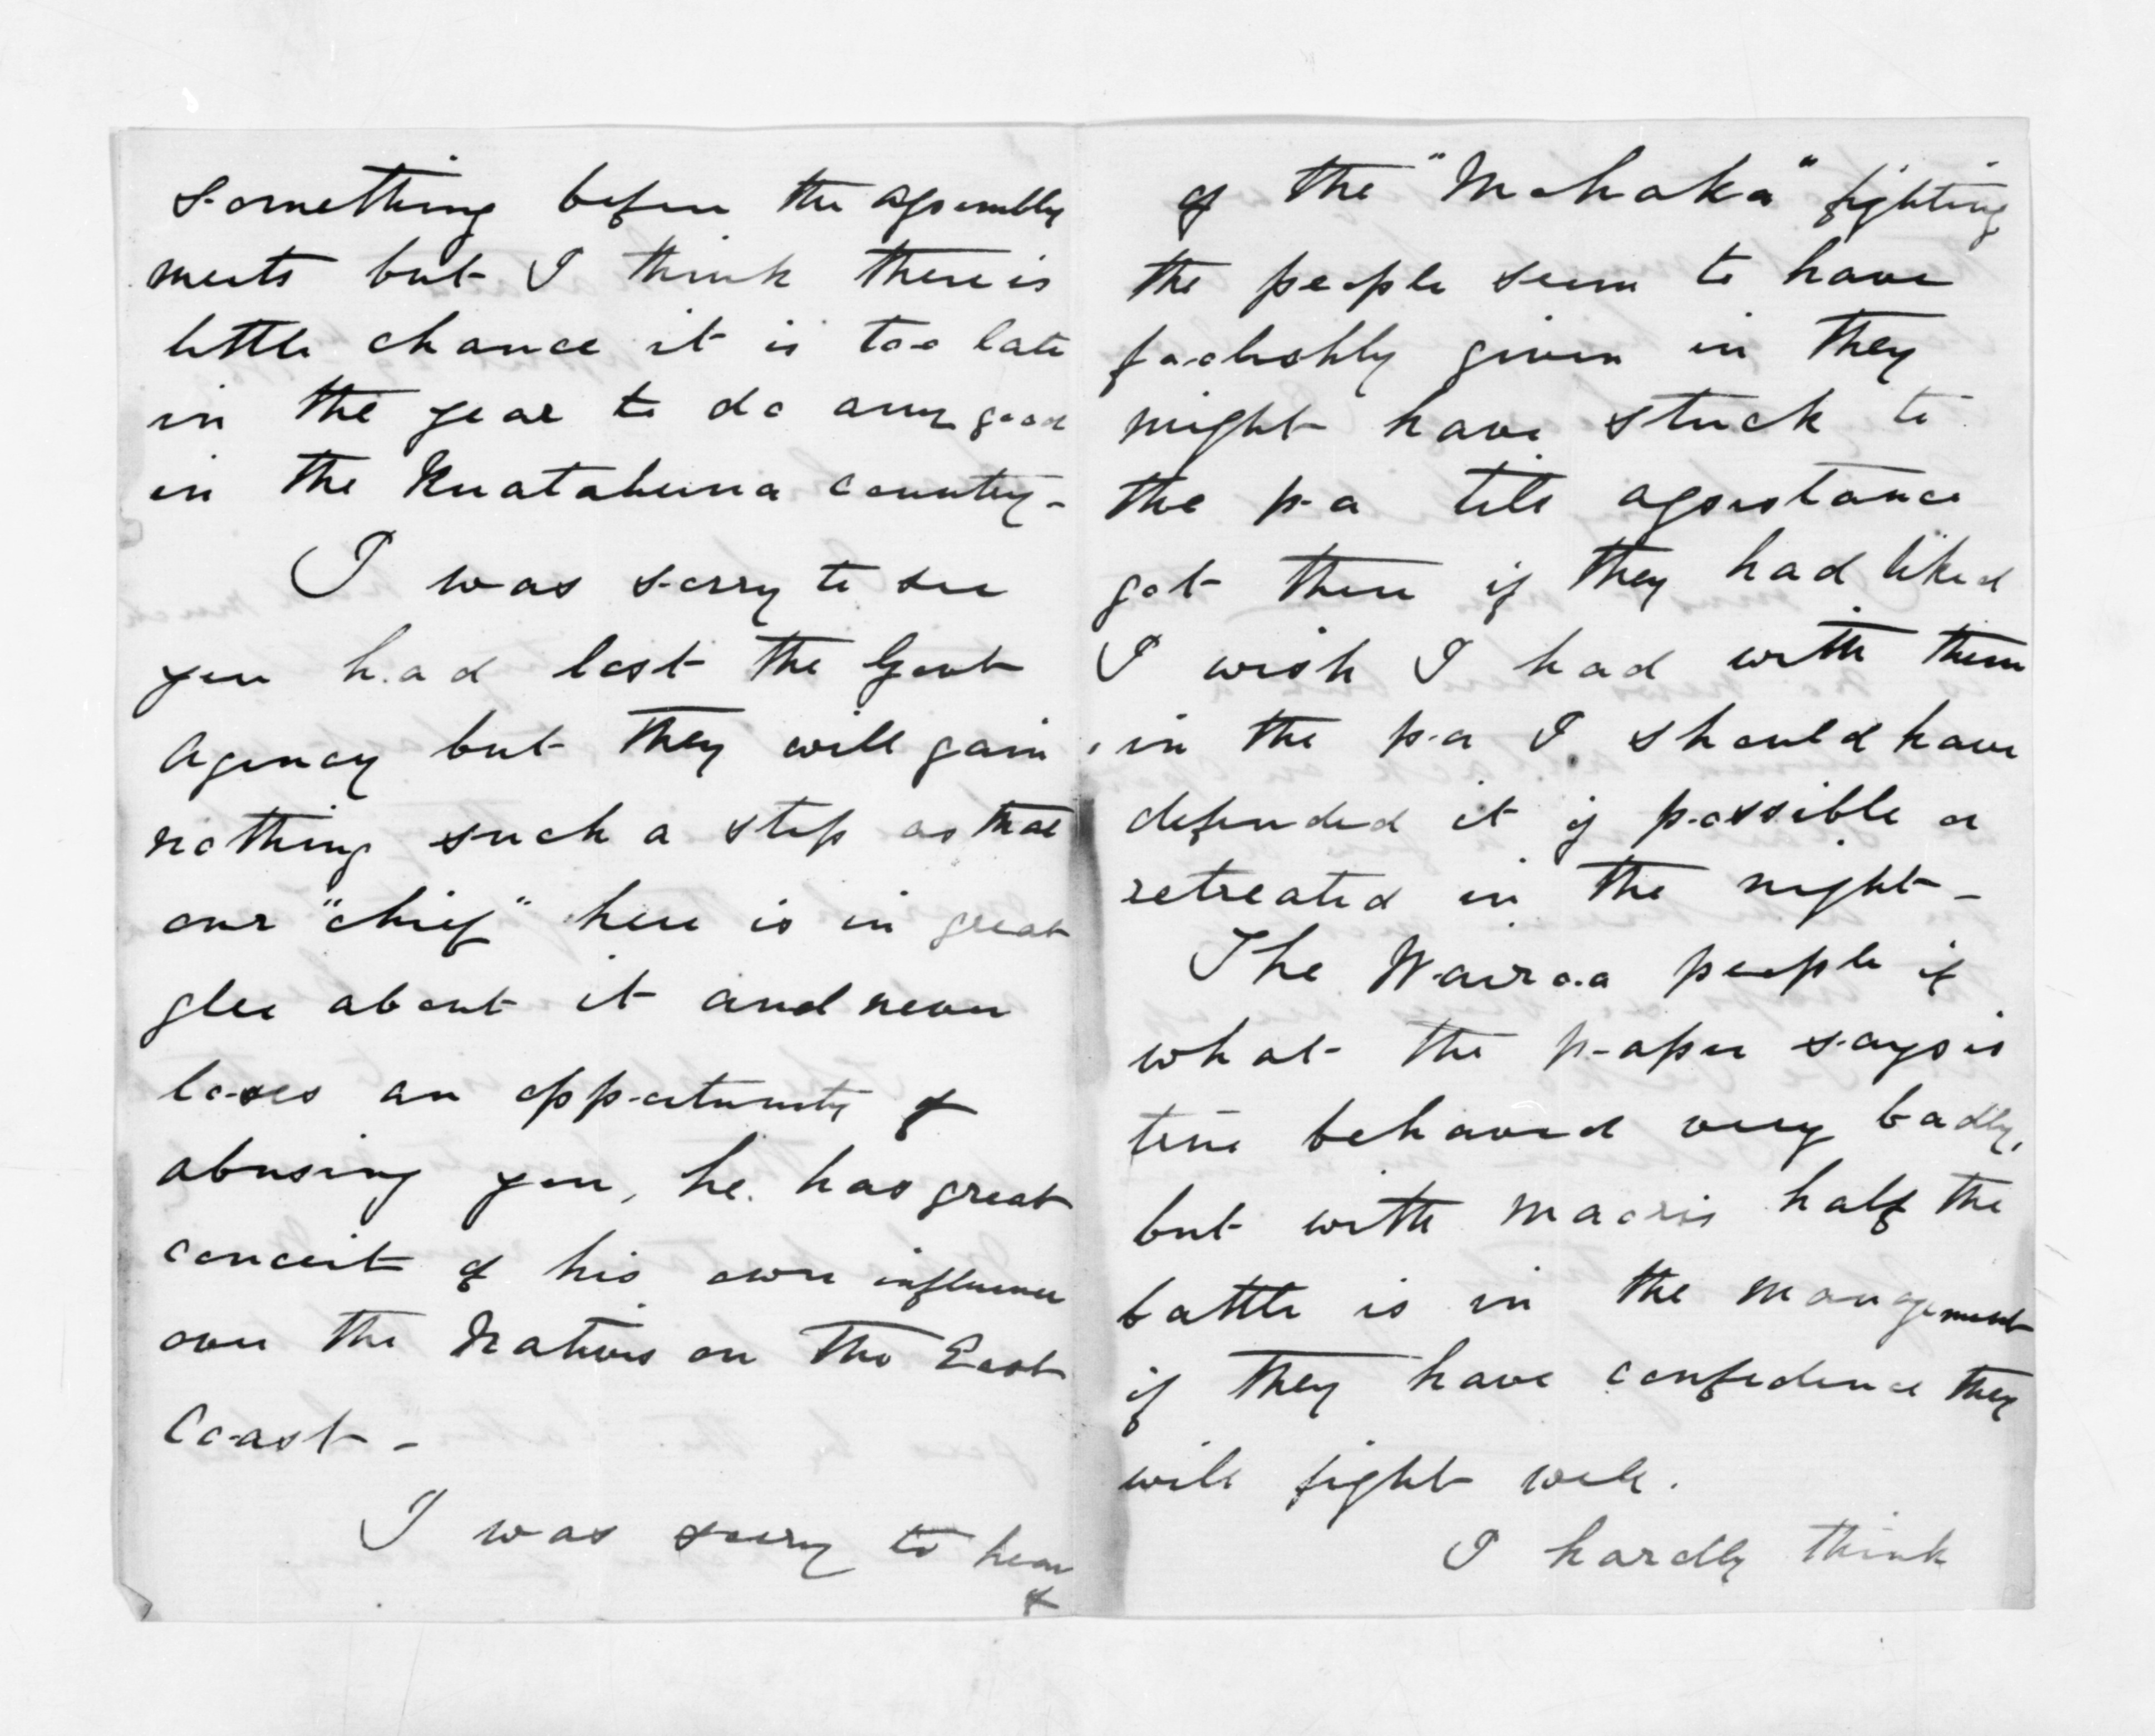 something before the assembly
meets but I think there is
little chance it is too late
in the year to do any good
in the Ruatahuna country -
I was sorry to see
you had lost the Govt
Agency but they will gain
nothing such a step as that
our "chief" here is in great
glee about it and never
loses an opportunity of
abusing you, he has great
conceit of his own influence
over the Natives on the East
Coast -
I was sorry to hear
of
of the "Mohaka" fighting
the people seem to have
foolishly given in they
might have stuck to
the pa till assistance
got there if they had liked
I wish I had with them
in the pa I should have
defended it if possible or
retreated in the night -
The Wairoa people if
what the paper says is
true behaved very badly,
but with maoris half the
battle is in the management
if they have confidence they
will fight well.
I hardly think